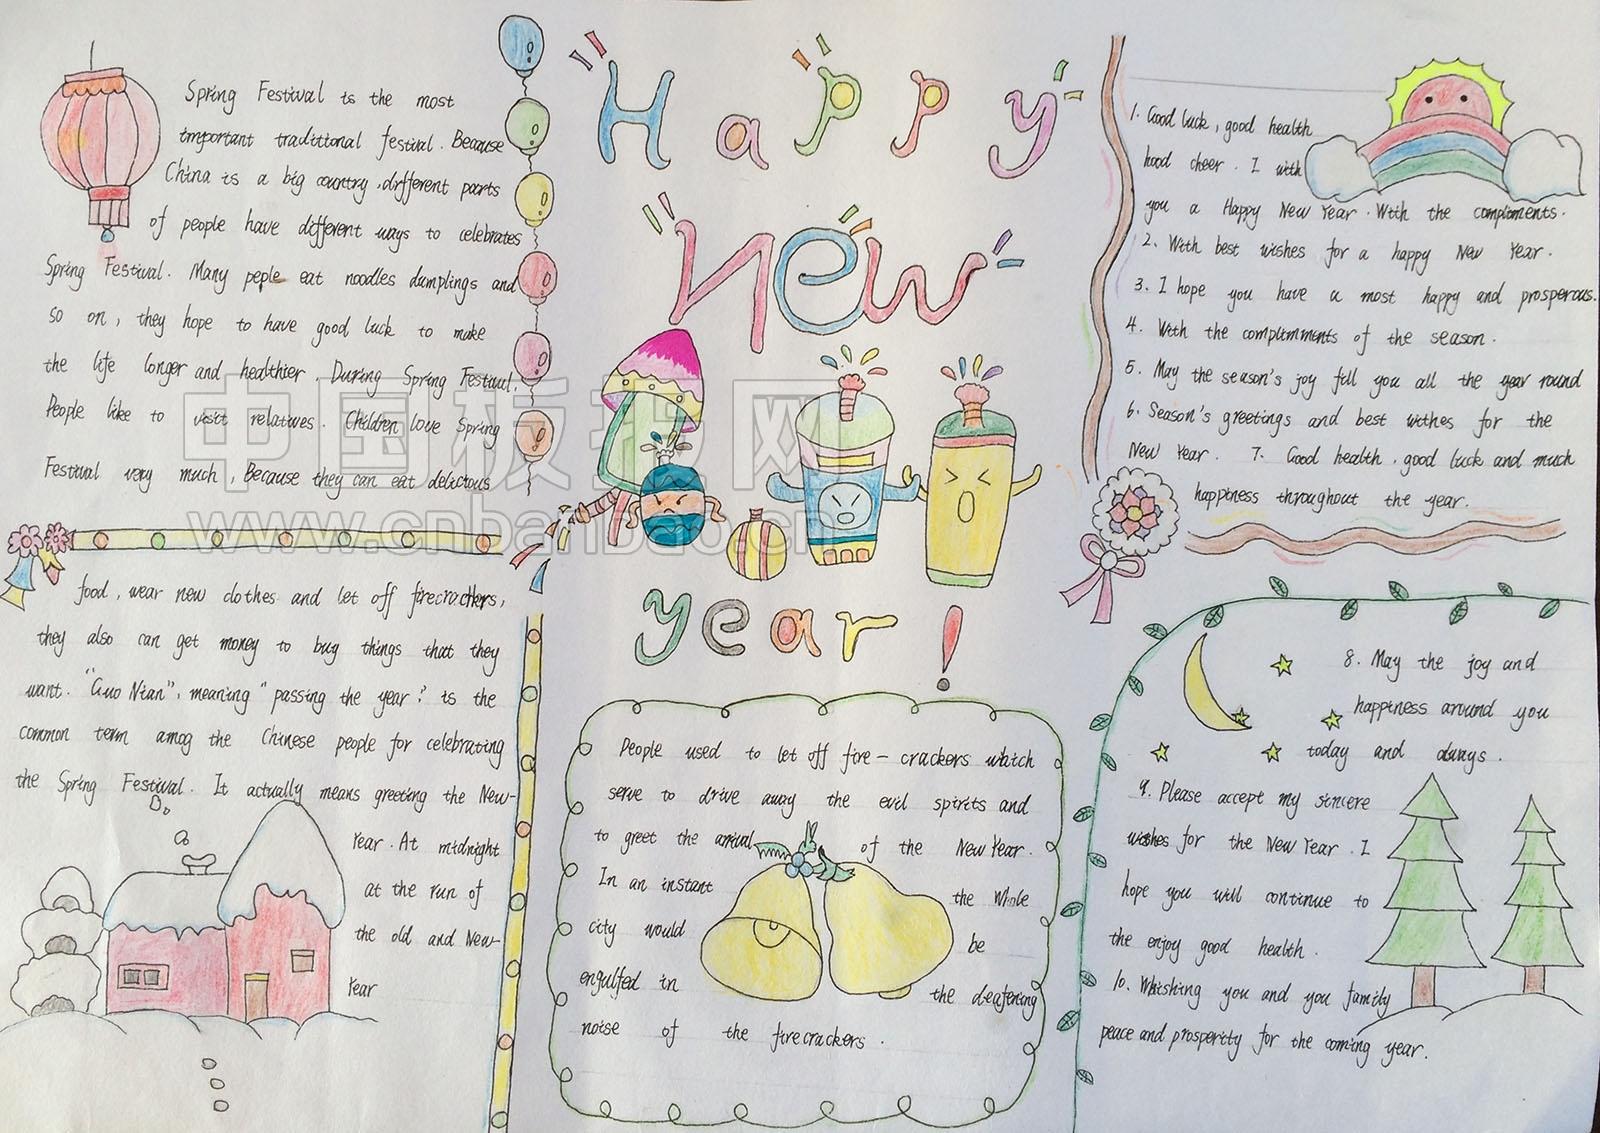 Happy
new
year!
Spring Festival is the most
important traditional festival. Because
China is a big country, different parts
of people have different ways to celebrates
Spring Festival. Many peple eat noodles dumplings and
so on, they hope to have good luck to make
the life longer and healthier. During Spring Festival.
People like to visit relatives. Children love Spring
Festival very much, Because they can eat delicious
food, wear new clothes and let off firecrackers,
they also can get money to buy things that they
want. "Guo Nian", meaning "passing the year." is the
common term amog the Chinese people for celebrating
the Spring Festival. It actually means greeting the New-
Year. At midnight
at the run of
the old and New-
Year
People used to let off fire-crackers which
serve to drive away the evil spirits and
to greet the arrival of the New Year.
In an instant the whole
city would be
engulfed in the deafening
noise of the firecrackers.
1. Good luck, good health
hood cheer. I with
you a Happy New Year. With the compliments.
2. With best wishes for a happy New Year.
3. I hope you have a most happy and prosperous.
4. With the complimments of the season.
5. May the season's joy fill you all the year round
6. Season's greetings and best withes for the
New Year. 7. Good health, good luck and much
happiness throughout the year.
8. May the joy and
happiness around you
today and always.
9. Please accept my sincere
wishes for the New Year. I
hope you will continue to
the enjoy good health.
10. Whishing you and you family
peace and prosperity for the coming year.
中国板报网
www.cnbanbao.cn